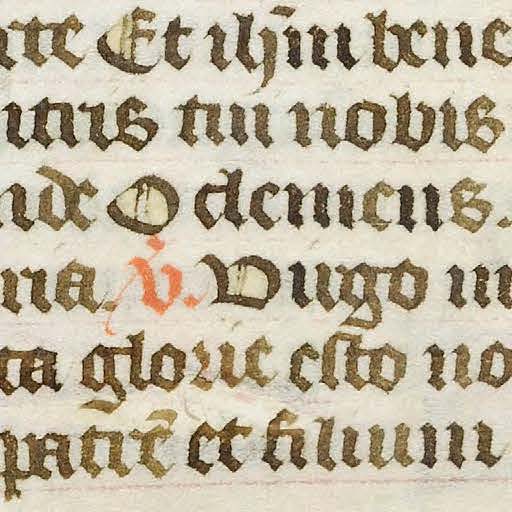 Et ihm bene
tuis tui nobis
O clemens.
ria ℣. Virgo
glorie esto no
patre et filium